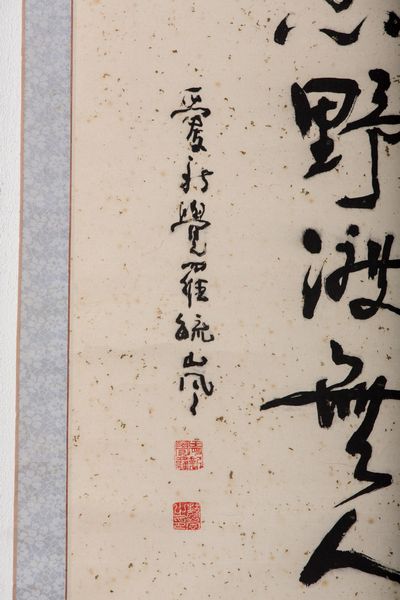 野渡無人
愛新覺羅毓嵐